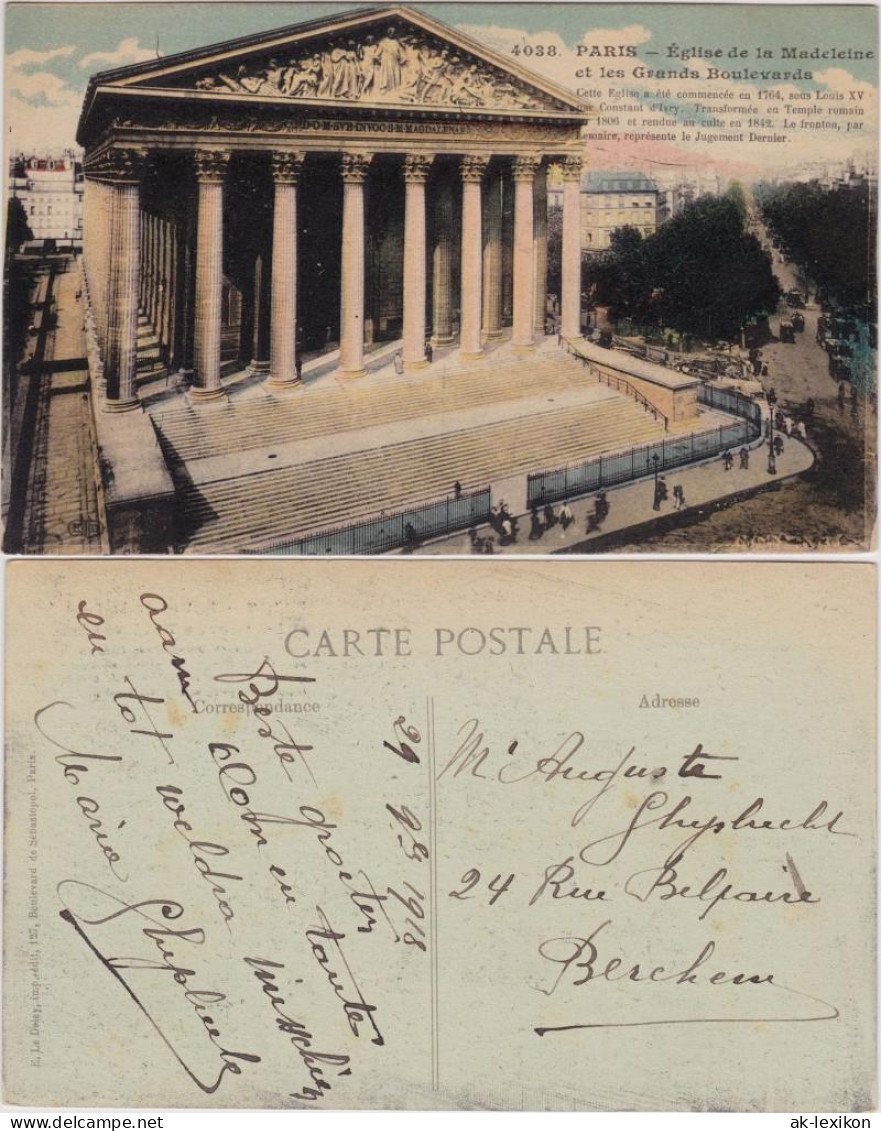 4038. PARIS — Église de la Madeleine
et les Grands Boulevards
Cette Eglise a été commencée en 1764, sous Louis XV
par Constant d'Ivry. Transformée en Temple romain
1806 et rendue au culte en 1842. Le fronton, par
Lemaire, représente le Jugement Dernier.
CARTE POSTALE
Correspondance
Adresse
29 1918
Beste groeten
aan Nom en tante
en tot weldra misschien
Marie Ghysbrecht
Mr Auguste
Ghysbrecht
24 Rue Belpaire
Berchem
E. Le Deley, imp.-édit., 127, Boulevard de Sébastopol, Paris.
ak-lexikon.com